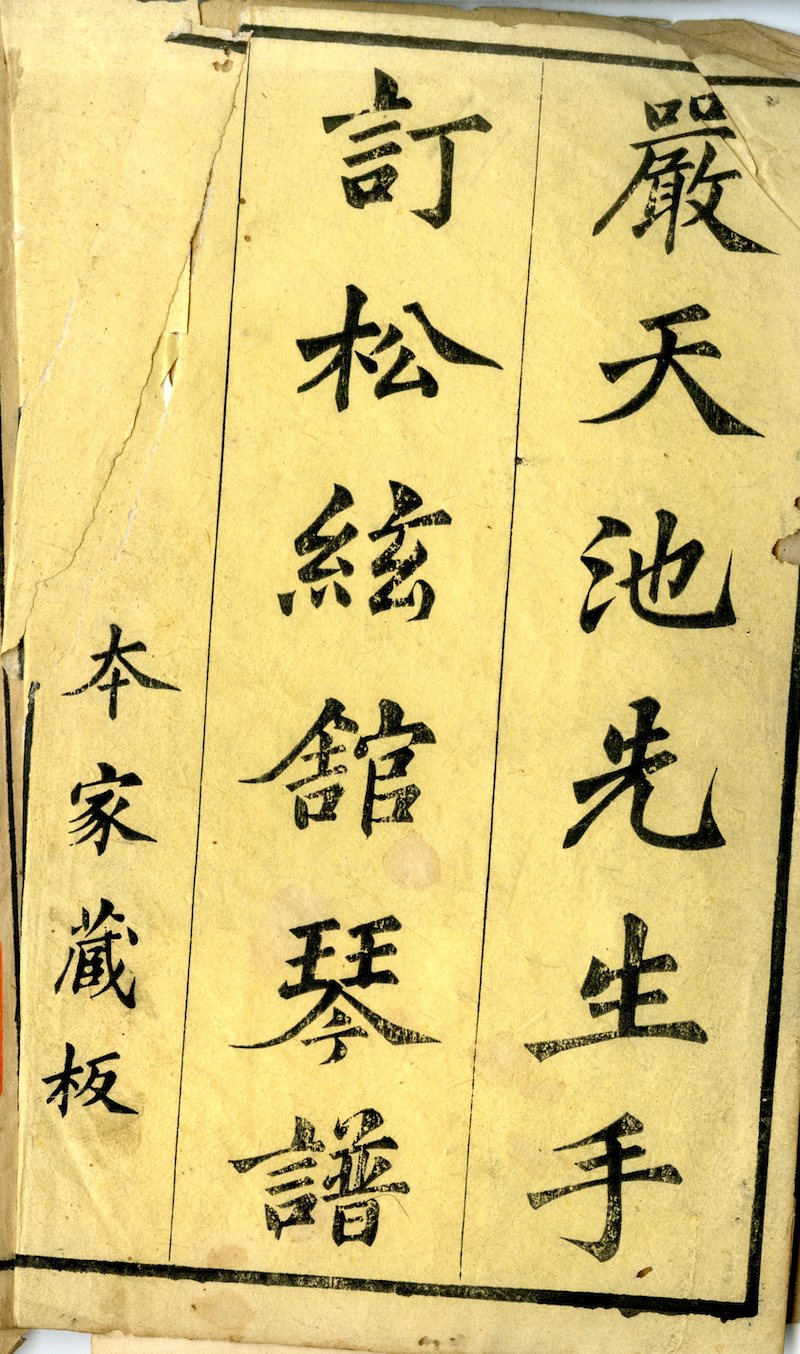 嚴天池先生手
訂松絃舘琴譜
本家蔵板